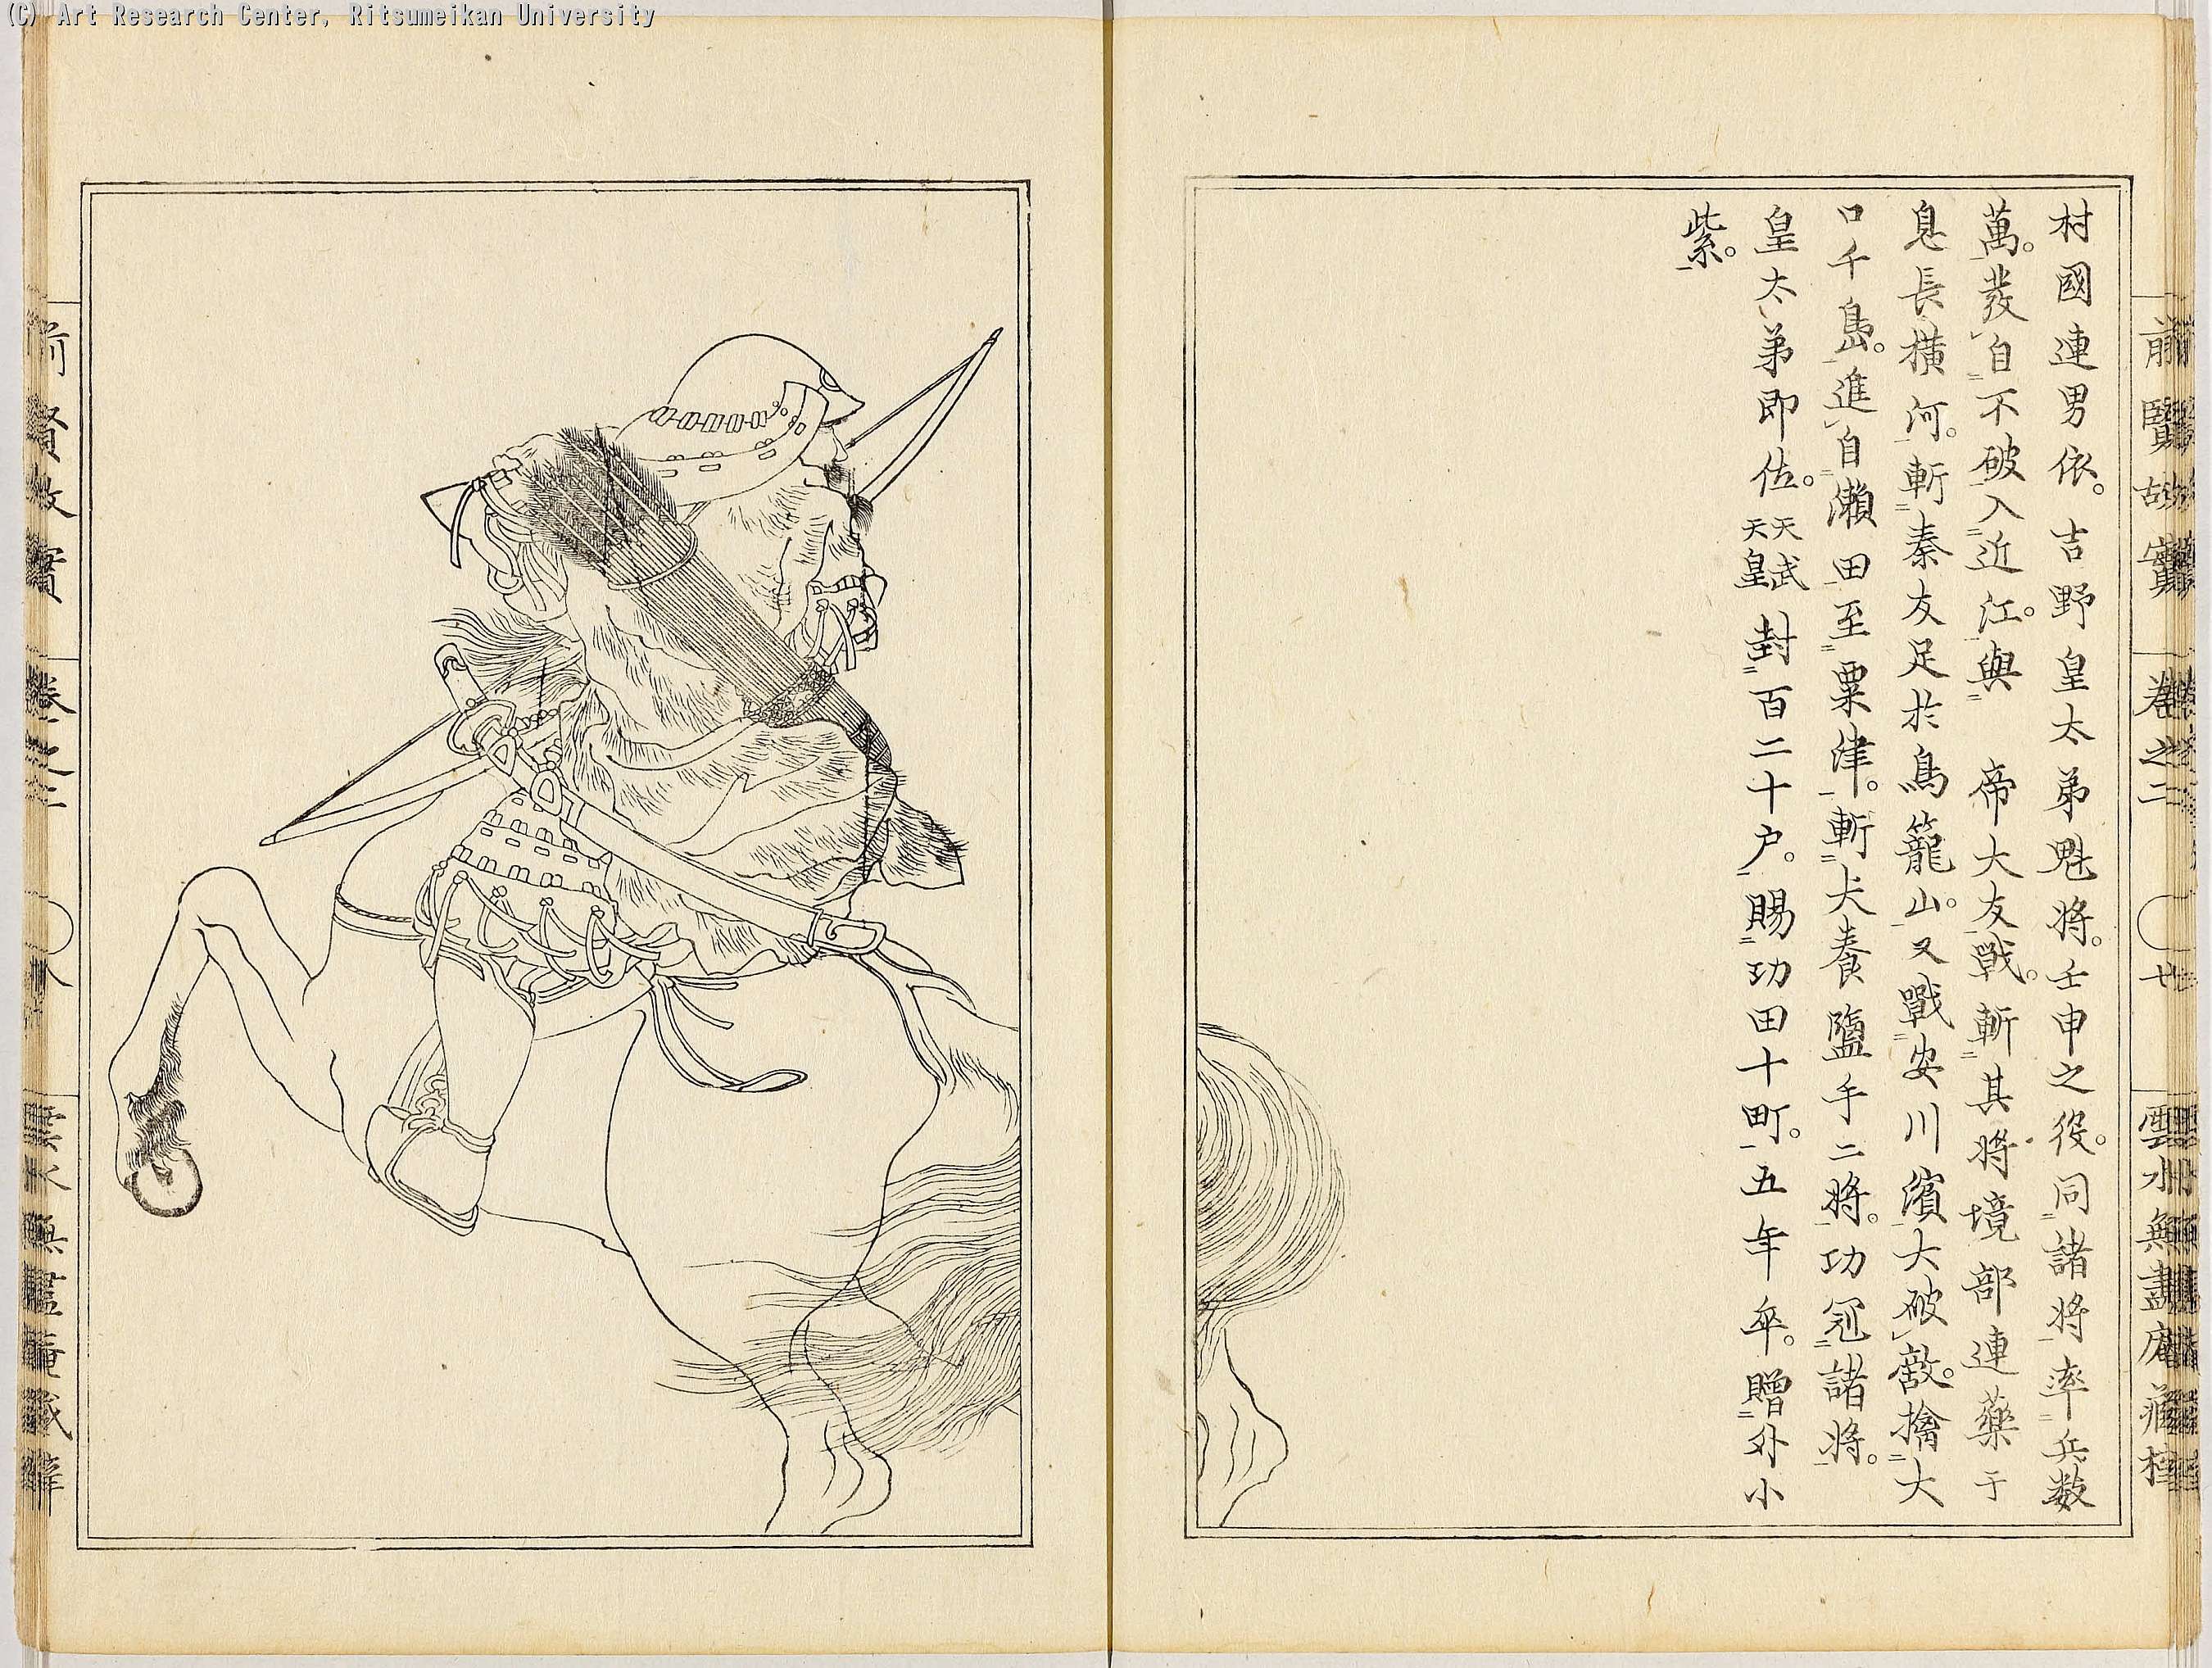 (C) Art Research Center, Ritsumeikan University
村國連男依。吉野皇太弟魁将。壬申之役。同諸将率兵数
萬。發自不破入近江。與　帝大友戰。斬其将境部連藥于
息長横河。斬秦友足於鳥籠山。又戰安川濱大破敵。擒大
口千島。進自瀬田至粟津。斬犬養鹽手二将。功冠諸将。
皇太弟即位。天武天皇封百二十户。賜功田十町。五年卒。贈外小
紫。
前賢故實
卷之二
廿
雲水無盡庵藏梓
前賢故實